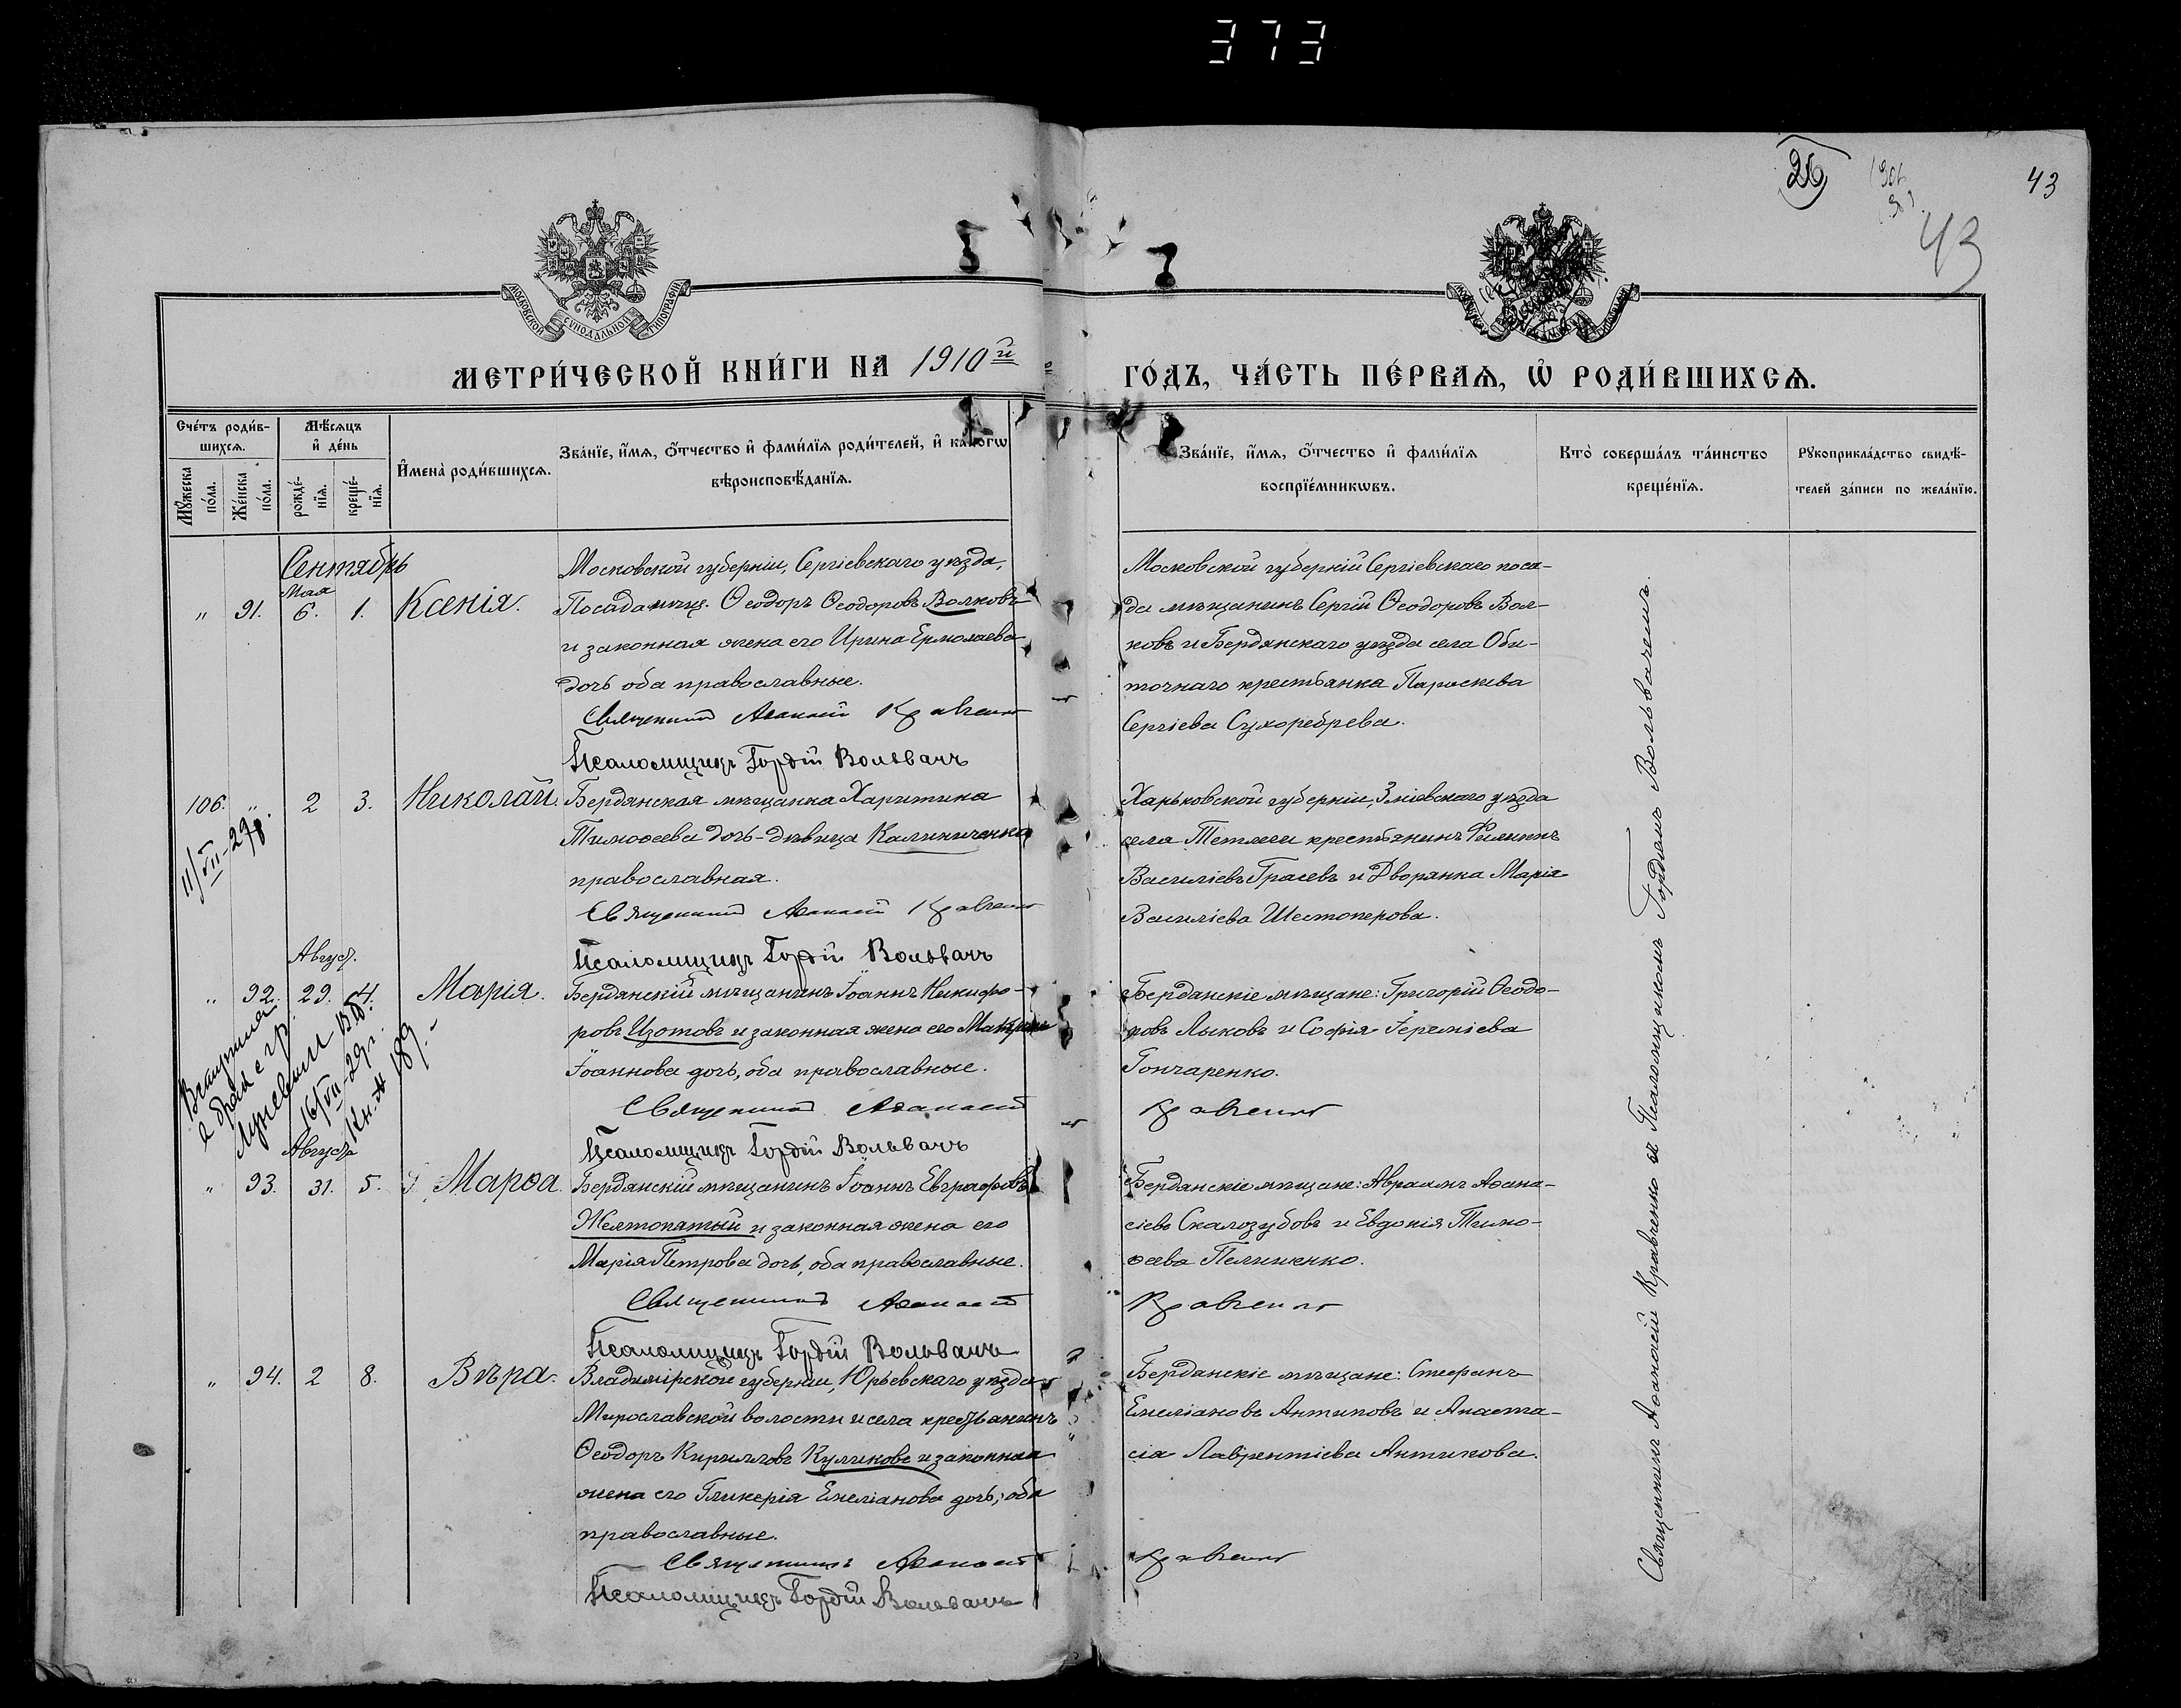 373
26
43
43
МОСКОВСКОЙ СѴНОДАЛЬНОЙ ТИПОГРАФІИ
МЕТРИ́ЧЕСКОЙ КНИ́ГИ НА 1910й
ГО́ДЪ, ЧА́СТЬ ПЕ́РВАЯ, Ѡ҆ РОДИ́ВШИХСЯ.
Сче́тъ роди́в-
шихся.
Мѣ́сяцъ
и҆ де́нь
Мꙋ́жеска
по́ла.
Же́нска
по́ла.
рожде́-
нїя.
креще́-
нїя.
И҆мена̀ роди́вшихся.
Зва́нїе, и҆́мя, ѻ҆́тчество и҆ фами́лїя роди́телей, и҆ како́гѡ
вѣроисповѣ́данїя.
Зва́нїе, и҆́мя, ѻ҆́тчество и҆ фами́лїя
воспрїе́мникѡвъ.
Кто̀ соверша́лъ та́инство
креще́нїя.
Рꙋкоприкла́дство свидѣ́-
телей за́писи по жела́нїю.
Сентябрь
Мая
" 91. 6. 1. Ксенія.
Московской губерніи, Сергіевскаго уѣзда,
Посада мѣщ. Ѳеодоръ Ѳеодоровъ Волковъ
и законная жена его Ирина Ермолаева
дочь оба православные.
Священникъ Аѳанасій Кравченко
Псаломщикъ Гордій Вольвачъ
Московской губерніи Сергіевскаго поса-
да мѣщанинъ Сергій Ѳеодоровъ Вол-
ковъ и Бердянскаго уѣзда села Оби-
точнаго крестьянка Параскева
Сергіева Сухоребрева.
106. " 2 3. Николай.
11/VII-29г.
Бердянская мѣщанка Харитина
Тимоѳеева дочь-дѣвица Калиниченко
православная.
Священникъ Аѳанасій Кравченко
Псаломщикъ Гордій Вольвачъ
Харьковской губерніи, Зміевскаго уѣзда
села Тетлеги крестьянинъ Филиппъ
Василіевъ Грасевъ и Дворянка Марія
Василіева Шестоперова.
Август.
" 92. 29. 4. Марія.
Бердянскій мѣщанинъ Іоаннъ Никифо-
ровъ Изотовъ и законная жена его
Іоаннова дочь, оба православные.
Священникъ Аѳанасій Кравченко
Псаломщикъ Гордій Вольвачъ
Бердянскіе мѣщане: Григорій Ѳеодо-
ровъ Лыковъ и Софія Іереміева
Гончаренко.
в брак с гр.
16/VII-29г.
Август
" 93. 31. 5. Марѳа.
Бердянскій мѣщанинъ Іоаннъ Евграфовъ
Желтопятый и законная жена его
Марія Петрова дочь, оба православные.
Священникъ Аѳанасій Кравченко
Псаломщикъ Гордій Вольвачъ
Бердянскіе мѣщане: Авраамъ Аѳана-
сіевъ Скалозубовъ и Евдокія Тимо-
ѳеева Пелишенко.
" 94. 2 8. Вѣра.
Владимірской губерніи, Юрьевскаго уѣзда
Мирославской волости и села крестьянинъ
Ѳеодоръ Кирилловъ Куликовъ и законная
жена его Гликерія Емеліанова дочь, оба
православные.
Священникъ Аѳанасій Кравченко
Псаломщикъ Гордій Вольвачъ
Бердянскіе мѣщане: Стефанъ
Емеліановъ Антиповъ и Анаста-
сія Лаврентіева Антипова.
Священникъ Аѳанасій Кравченко съ Псаломщикомъ Гордіемъ Вольвачемъ.